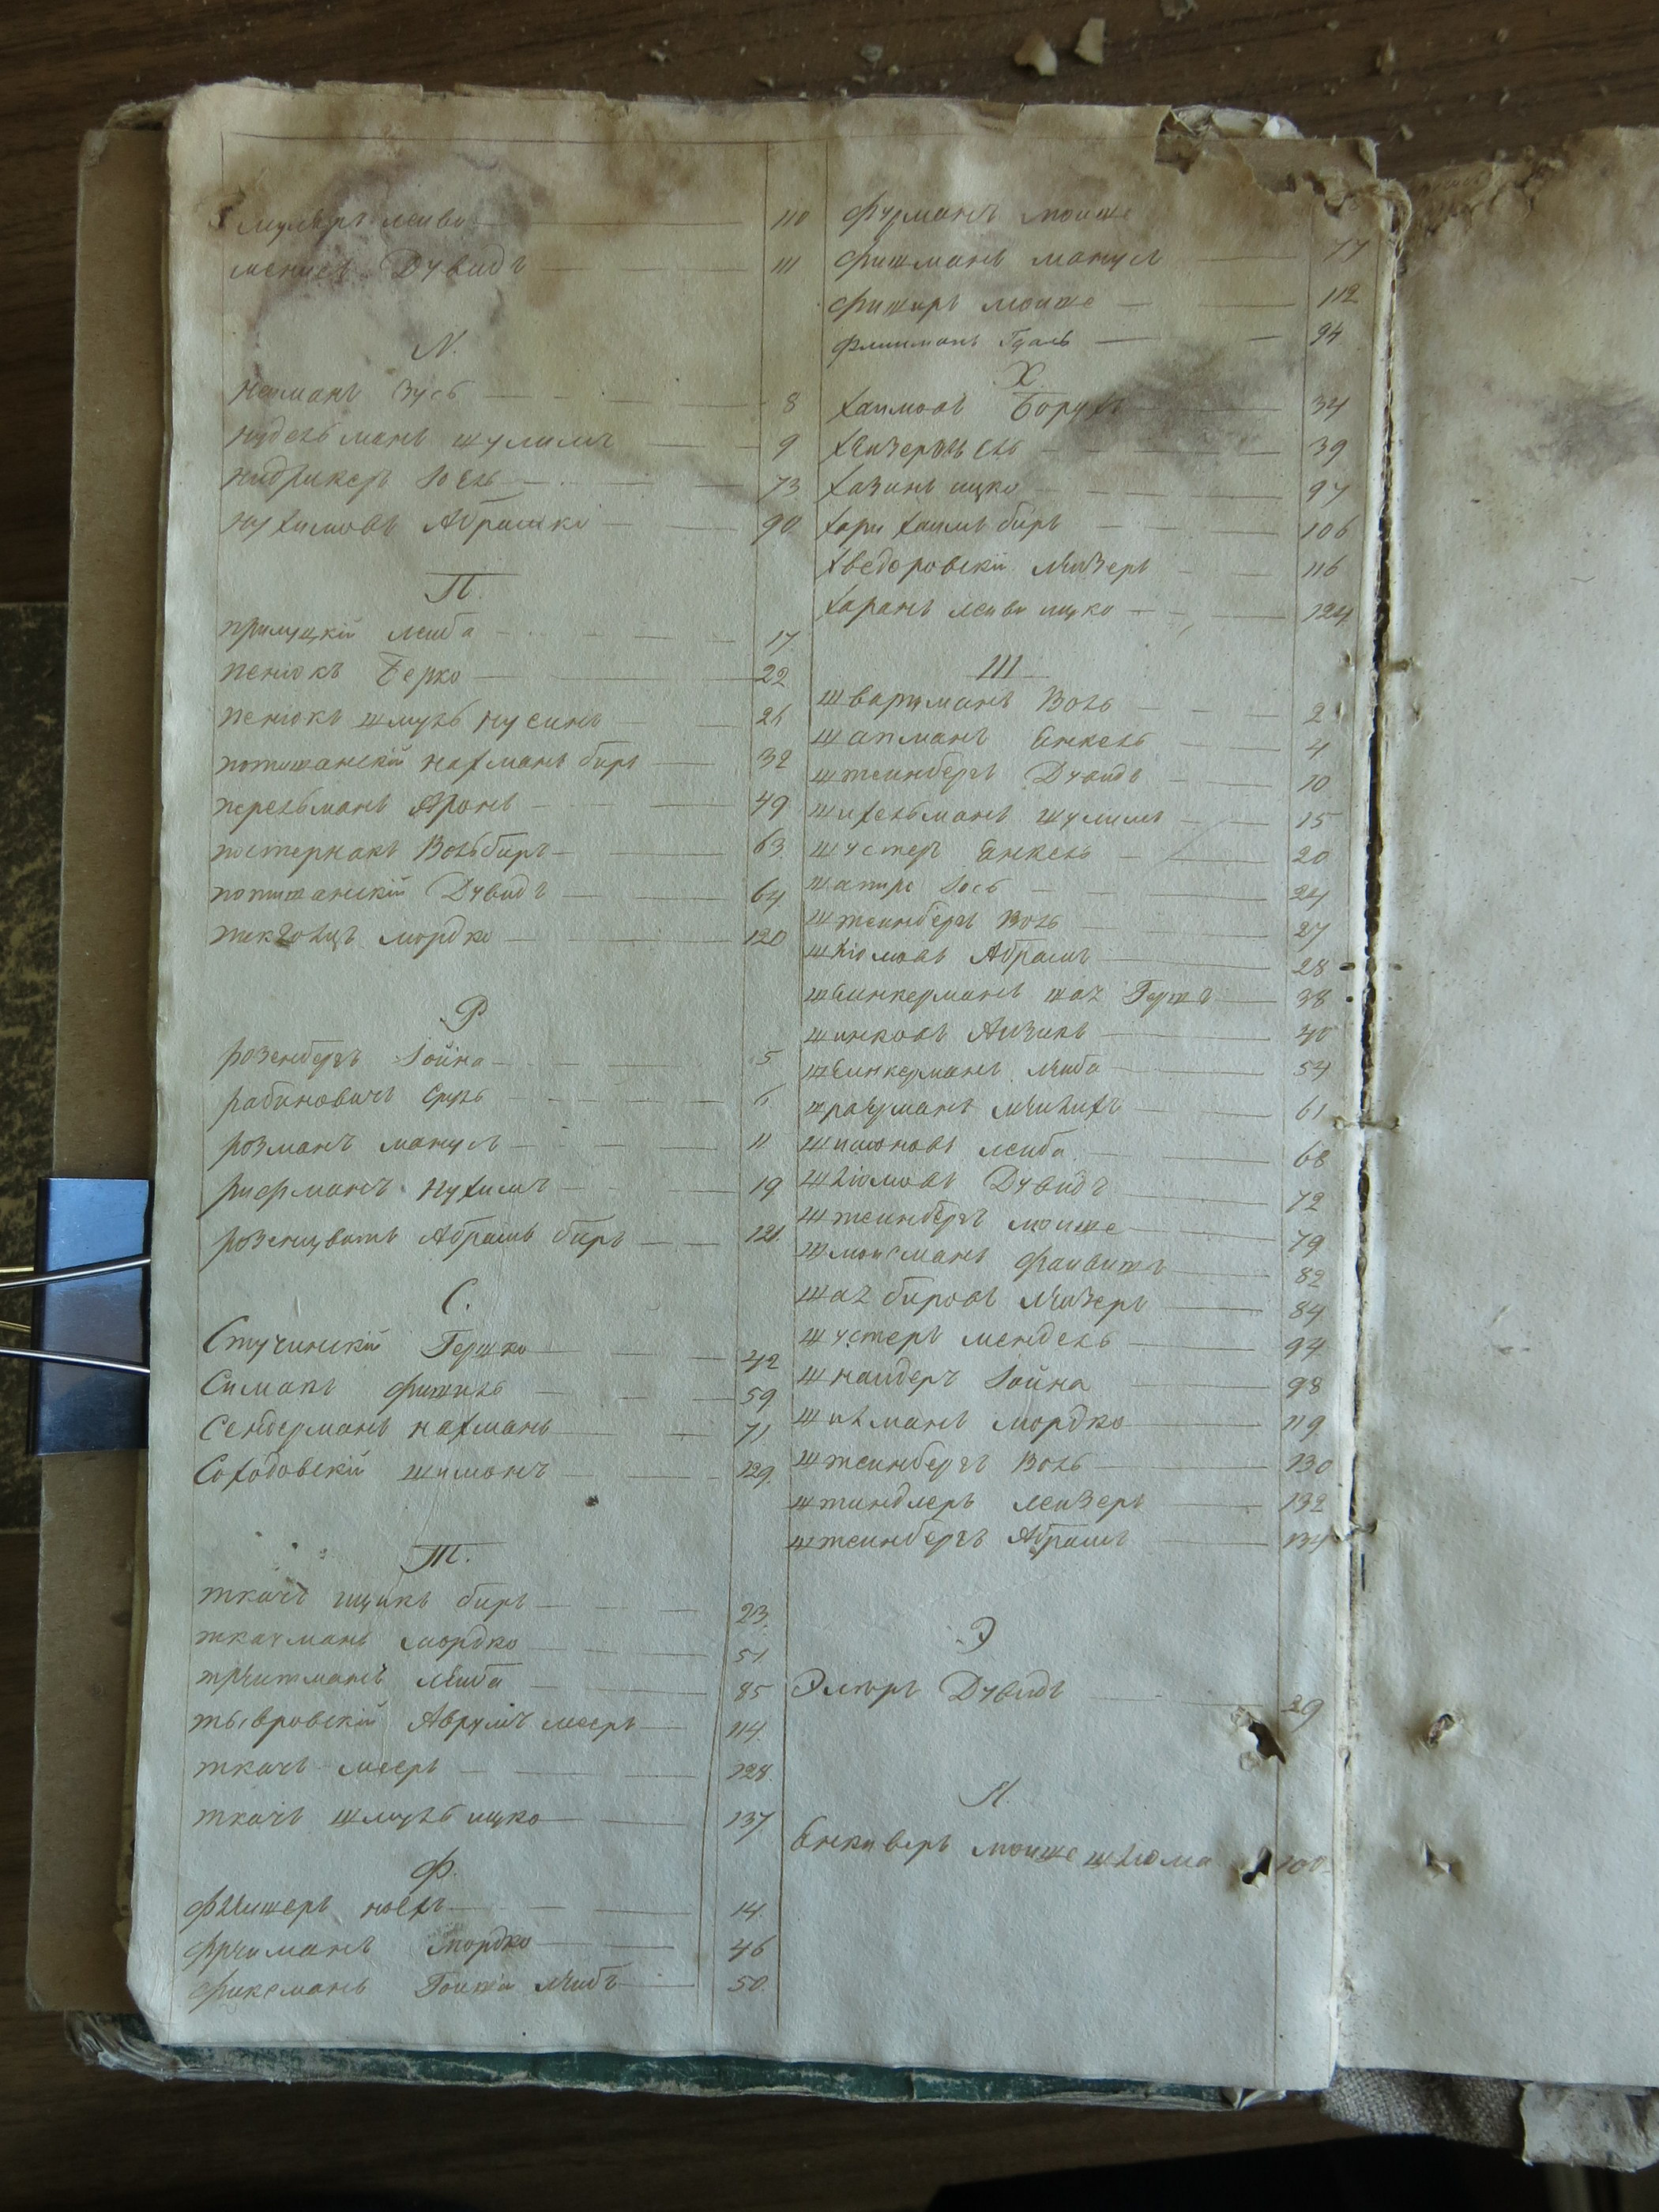 Мулеръ Лейба 110
Менисъ Дувидъ 111
N.
Нотманъ Зусь 8
Нудельманъ Шулимъ 9
Юсь 73
Нухимовъ Абрашко 90
П.
Прилуцкій Лейба 17
Пенюкъ Берко 22
Пенюкъ Шмуль Нусинъ 26
Потишанскій Нахманъ биръ 32
Перельманъ Аронъ 49
Постернакъ Вольбиръ 63
Потишанскій Дувидъ 64
Мордко 120
Р
Розенбергъ Іойна 5
Рабиновичъ Сруль 6
Розманъ Манусъ 11
Рифманъ Нухимъ 19
Розенцватъ Абрамъ биръ 121.
С.
Стучинскій Гершко 42
Симакъ Фишиль 59
Сендерманъ Нахманъ 71
Соходовскій Шимонъ 129.
Т.
Ткачъ Ицикъ биръ 23.
Ткачманъ Мордко 51
Трейтманъ Лейба 85
Тывровскій Аврумъ Мееръ 114.
Ткачъ Мееръ 128.
Ткачъ Шмуль Ицко 137
Ф.
Флейшеръ Ноехъ 14.
Фрейманъ Мордко 46
Фиксманъ Лейбъ 50.
Фурманъ Мошке
Фишманъ Манусъ 77
Фиширъ Мошке 112
94
Х.
Хаимовъ Борухъ 34
39
Хазинъ Ицко 97
Хаимъ биръ 106
Хведоровскій Лейзеръ 116
Харанъ Лейба Ицко 124
Ш
Швартманъ Воль 2
Шапманъ Енкель 4
Штеинбергъ Дувидъ 10
Шихельманъ Шулимъ 15
Шустеръ Енкель 20
Шапиро Іось 24
Штеинбергъ Воль 27
Шліомовъ Абрамъ 28
Шеинкерманъ Гершъ 38
Шинковъ Аизикъ 40
Шеинкерманъ Лейба 54
61
Шимоновъ Лейба 68
Шліомовъ Дувидъ 72
Штеинбергъ Мошке 79
Шмоисманъ Фаивишъ 82
Лейзеръ 84
Шустеръ Мендель 94
Шнаидеръ Іойна 98
Шихманъ Мордко 119
Штеинбергъ Воль 130
Штиндлеръ Лейзеръ 132
Штеинбергъ Абрамъ 134
Э
Элтыръ Дувидъ 29
Я.
Мошке Шлюма 100